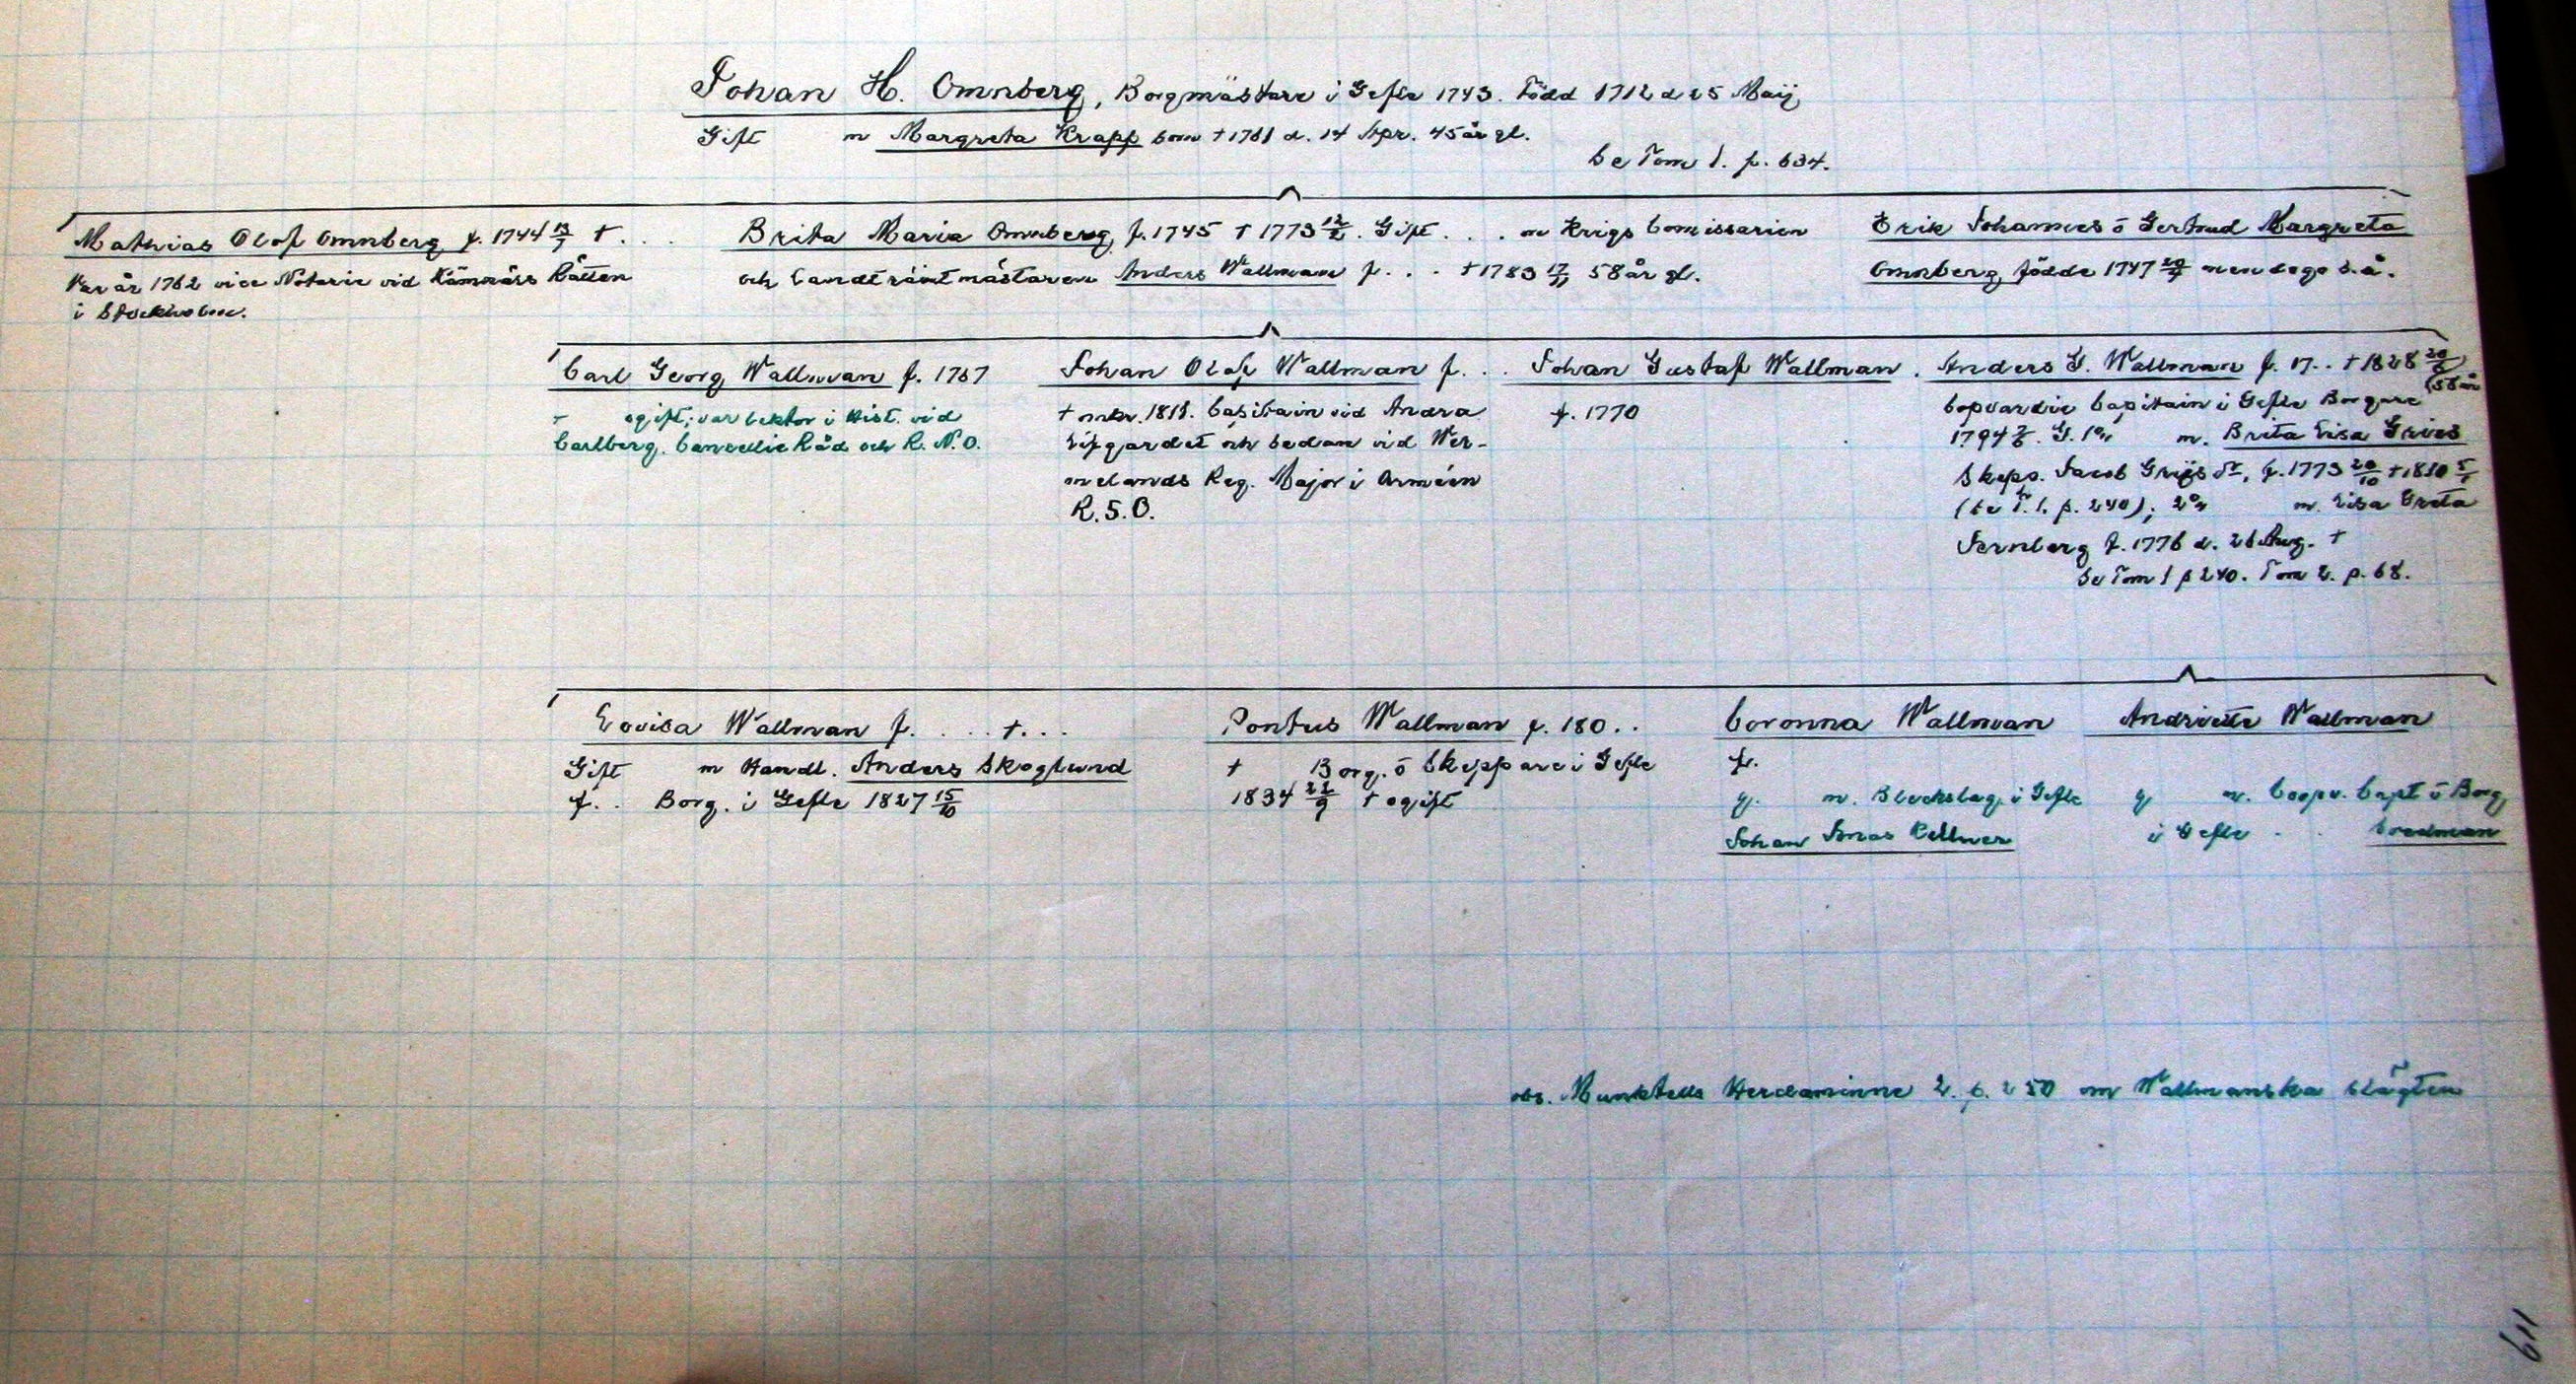 Johan H. Omnberg, Borgmästare i Gefle 1743. Född 1712 d 25 Maij
Gift m Margreta Krapp som † 1761 d. 14 Apr. 45 år gl.
Se Tom 1. p. 634.
Mathias Olof Omnberg f. 1744 13/7 † . . .
Var år 1762 vice Notarie vid Kämnärs Rätten
i Stockholm.
Brita Maria Omnberg, f. 1745 † 1773 12/2. Gift . . . m Krigs Comissarien
och Landträntmästaren Anders Wallman f. . . † 1783 17/11 58 år gl.
Erik Johannes ō Gertrud Margreta
Omnberg, födde 1747 20/7 men dogo s. å.
Carl Georg Wallman f. 1767
† ogift; var Lektor i Hist. vid
Carlberg. Cancellie Råd och R. N. O.
Johan Olof Wallman f. . .
† omkr. 1818. Capitain vid Andra
Lifgardet och sedan vid Wer-
melands Reg. Major i Arméen
R. S. O.
Johan Gustaf Wallman.
f. 1770
Anders G. Wallman f. 17.. † 1828 20/6
(58 år
Copvardie Capitain i Gefle Borgare
1794 2/6. G. 1° m. Brita Lisa Gries
Skepp. Jacob Grijs dr, f. 1773 20/10 † 1810 5/1
(se T. 1. p. 240); 2° m. Lisa Greta
Fernberg f. 1776 d. 26 Aug. †
Se Tom 1 p 240. Tom 2. p. 68.
Lovisa Wallman f. . . . † . . .
Gift m Handl. Anders Skoglund
f. . Borg. i Gefle 1827 15/10
Pontus Wallman f. 180 . .
† Borg. ō Skeppare i Gefle
1834 22/9 † ogift
Coronna Wallman
f.
g. m. Bleckslag. i Gefle
Johan Jonas Kellner
Andriette Wallman
g m. Coopv. Capt ō Borg
i Gefle . .
obs. Munktells Herdaminne 2. p. 250 om Wallmanska slägten
611